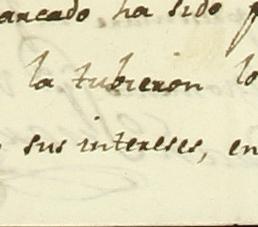 arcado ha sido
la tubieron lo
sus intereses, en